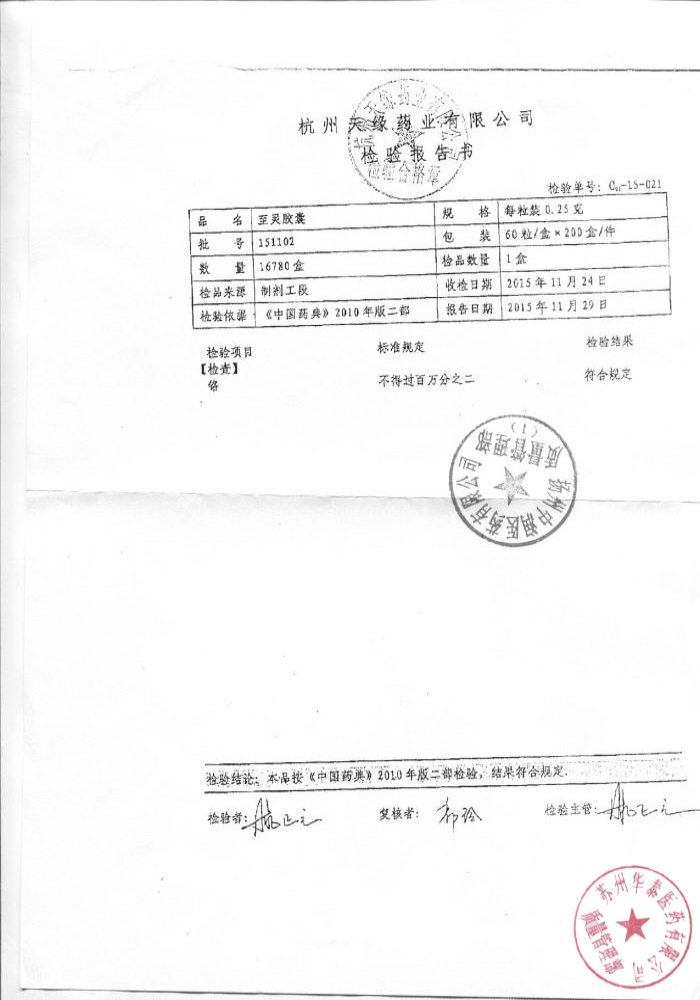 杭州天缘药业有限公司
检验报告书
检验合格章
检验单号：C₀₁-15-021
品名 至灵胶囊 规格 每粒装0.25克
批号 151102 包装 60粒/盒×200盒/件
数量 16780盒 检品数量 1盒
检品来源 制剂工段 收检日期 2015年11月24日
检验依据 《中国药典》2010年版二部 报告日期 2015年11月29日
检验项目 标准规定 检验结果
【检查】
铬 不得过百万分之二 符合规定
质量管理部
(1)
检验结论：本品按《中国药典》2010年版二部检验，结果符合规定.
检验者： 复核者： 检验主管：
苏州华泰医药有限公司
质量管理部